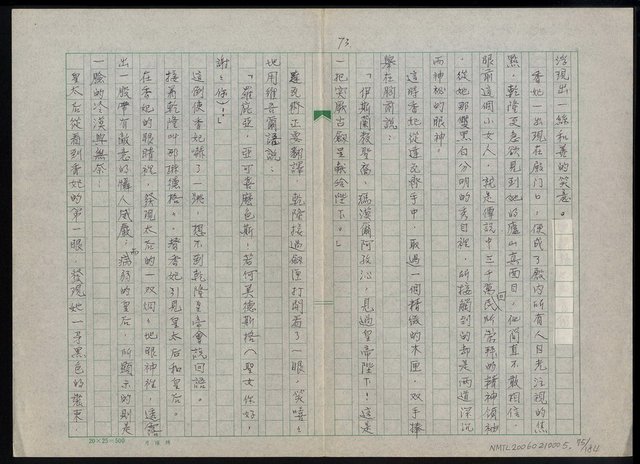 73
浮現出一絲和善的笑意。
香妃一出現在殿門口,便成了殿內所有人目光注視的焦
點,乾隆更急欲見到她的廬山真面目,他簡直不敢相信,
眼前這個小女人,就是傳說中三千萬回民所崇拜的精神領袖
,從她那雙黑白分明的秀目裡,所接觸到的却是兩道深沉
而神秘的眼神。
這時香妃從達瓦齊手中,取過一個精緻的木匣,双手捧
舉在胸前說:
「伊斯蘭教聖裔,瑪漢爾阿孜沁,見過皇帝陛下!這是
一把突厥古劍呈献給陛下。」
達瓦齊正要翻譯,乾隆接過劍匣打開看了一眼,笑嘻嘻
地用維吾爾語說:
「羅庇亞,亞可麥歷色斯,若何莫德斯搭(聖女你好,
謝謝你)!」
這倒使香妃嚇了一洪,想不到乾隆皇帝會說回語。
接著乾隆叫那班德搭,替香妃引見皇太后和皇后。
在香妃的眼睛裡,發現太后的一双烱烱地眼神裡,透露
出一股帶有敵意的懾人威嚴,而病弱的皇后,所顯示的則是
一臉的冷漠與無奈!
皇太后從看到香妃的第一眼,發現她一身黑色的裝束,
20×25=500
NMTL20060210005. 75/184